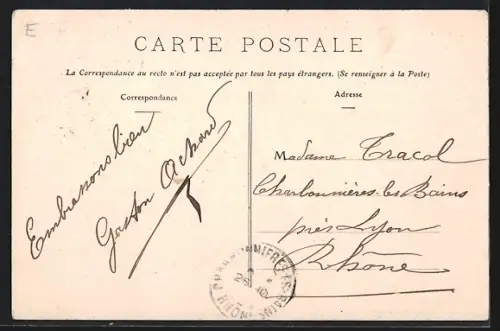 E
CARTE POSTALE
La Correspondance au recto n'est pas acceptée par tous les pays étrangers. (Se renseigner à la Poste)
Correspondance
Embrassons bien
Gaston Achard
Adresse
Madame Tracol
Charbonnières-les-Bains
près Lyon
Rhône
CHARBONNIERES-LES-BAINS RHONE